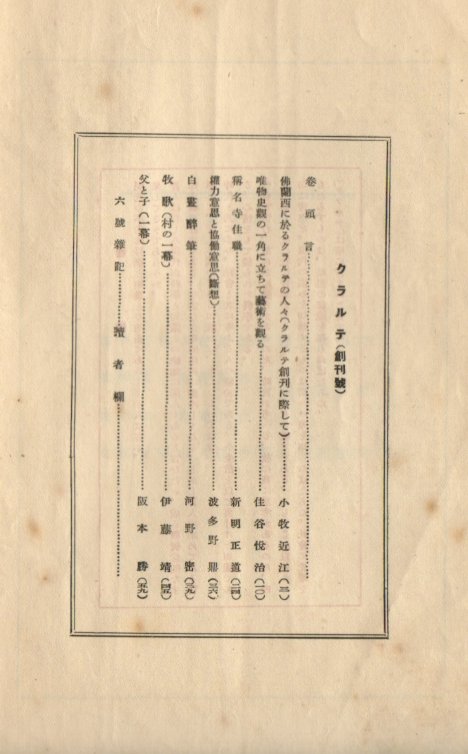 クラルテ（創刊號）
卷頭言
佛蘭西に於るクラルテの人々（クラルテ創刊に際して） 小牧近江（三）
唯物史觀の一角に立ちて藝術を觀る 住谷悦治（一〇）
稱名寺住職 新明正道（二四）
權力意思と協働意思（斷想） 波多野鼎（三六）
白晝醉筆 河野密（三九）
牧歌（村の一幕） 伊藤靖（四五）
父と子（一幕） 阪本勝（五九）
六號雜記 讀者欄